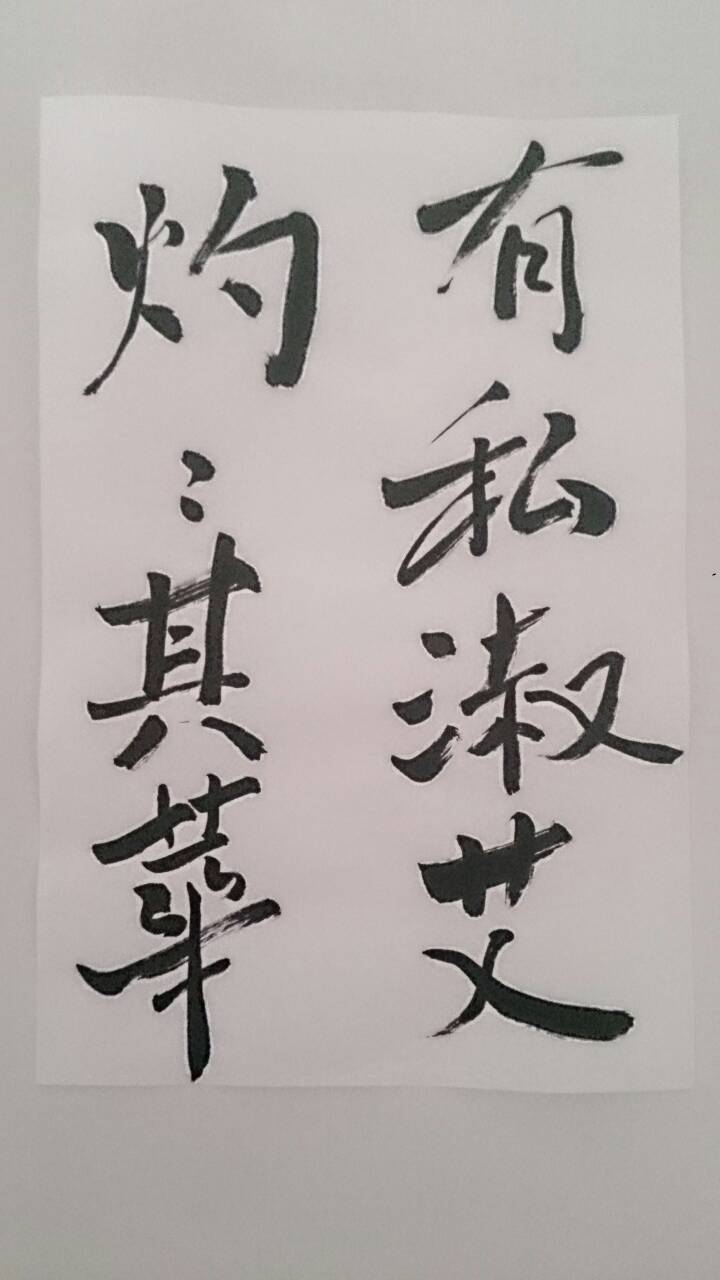 有私淑艾
灼〻其華